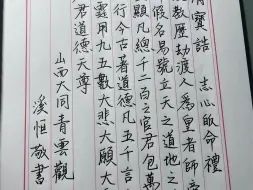 清寶誥 志心皈命禮
教歷劫渡人為皇者師
假名易號立天之道地之
顯凡總千二百之官君包萬
行今古著道德凡五千言
霆用九五數大悲大願大
君道德天尊
山西大同青雲觀
溪恒敬書